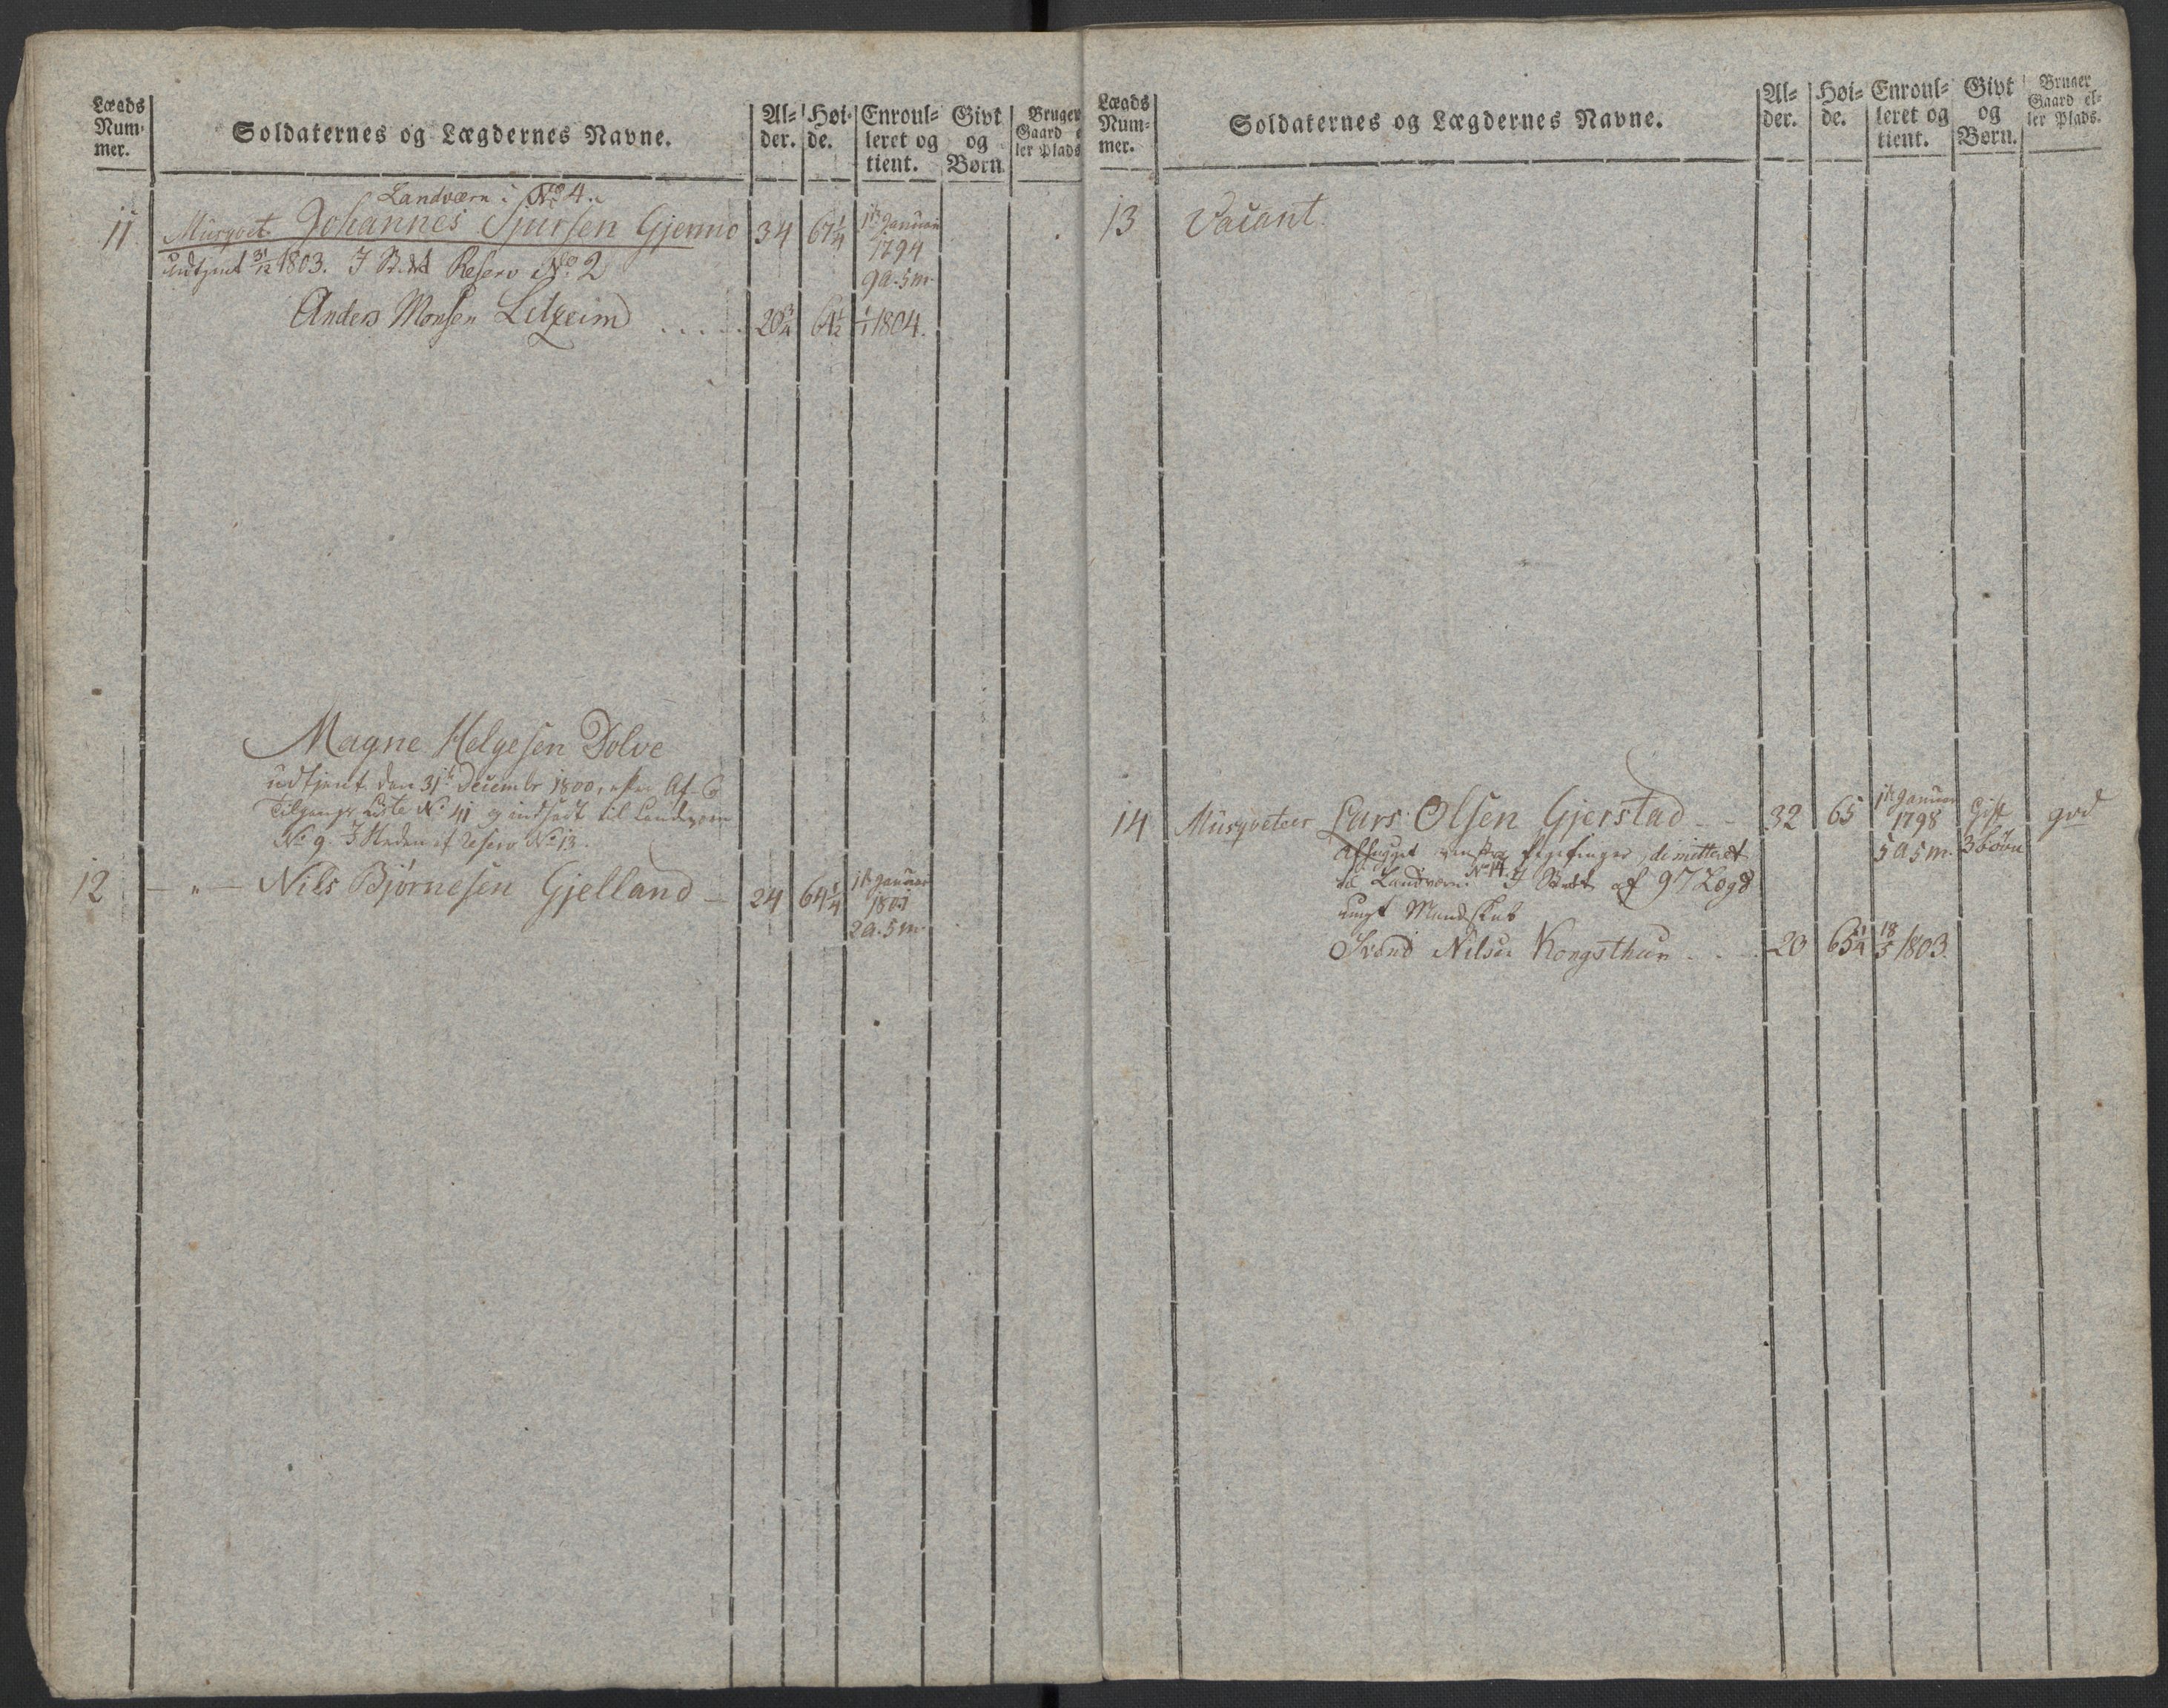 Lægds Num- mer.
Soldaternes og Lægdernes Navne.
Al- der.
Høi- de.
Enroul- leret og tient.
Givt og Børn
Bruger Gaard e ler Plads
Landværn i No 4.
11 Musqvet Johannes Sjursen Gjerme 34 67 1/4 1te Januari 1794 9 a. 5 m.
udtient 31/12 1803. I Sted Reserv No 2
Anders Monsen Litzeim .... 20 3/4 64 1/2 1/1 1804.
Magne Helgesen Dolve
udtjent den 31te Decembr 1800, efter Af- &
Tilgangs Liste No 41 og indsadt til Landværn
No 9. I Steden af Reserv No 13.
12 — " — Nils Bjørnesen Gjelland — 24 64 1/4 1te Januari 1801 2 a. 5 m.
Lægds Num- mer.
Soldaternes og Lægdernes Navne.
Al- der.
Høi- de.
Enroul- leret og tient.
Givt og Børn.
Bruger Gaard el- ler Plads.
13 Vacant.
14 Musqveteer Lars Olsen Gjerstad — 32 65 1te Januari 1798 5 a 5 m. Gift 3 børn god
Afhugget venstre pegefinger, dimitteret
til Landværn No 14. I Sted af 97 Lægd
ungt Mandskab
Svend Nilsen Kongsthun . . . 20 65 1/4 18/5 1803.